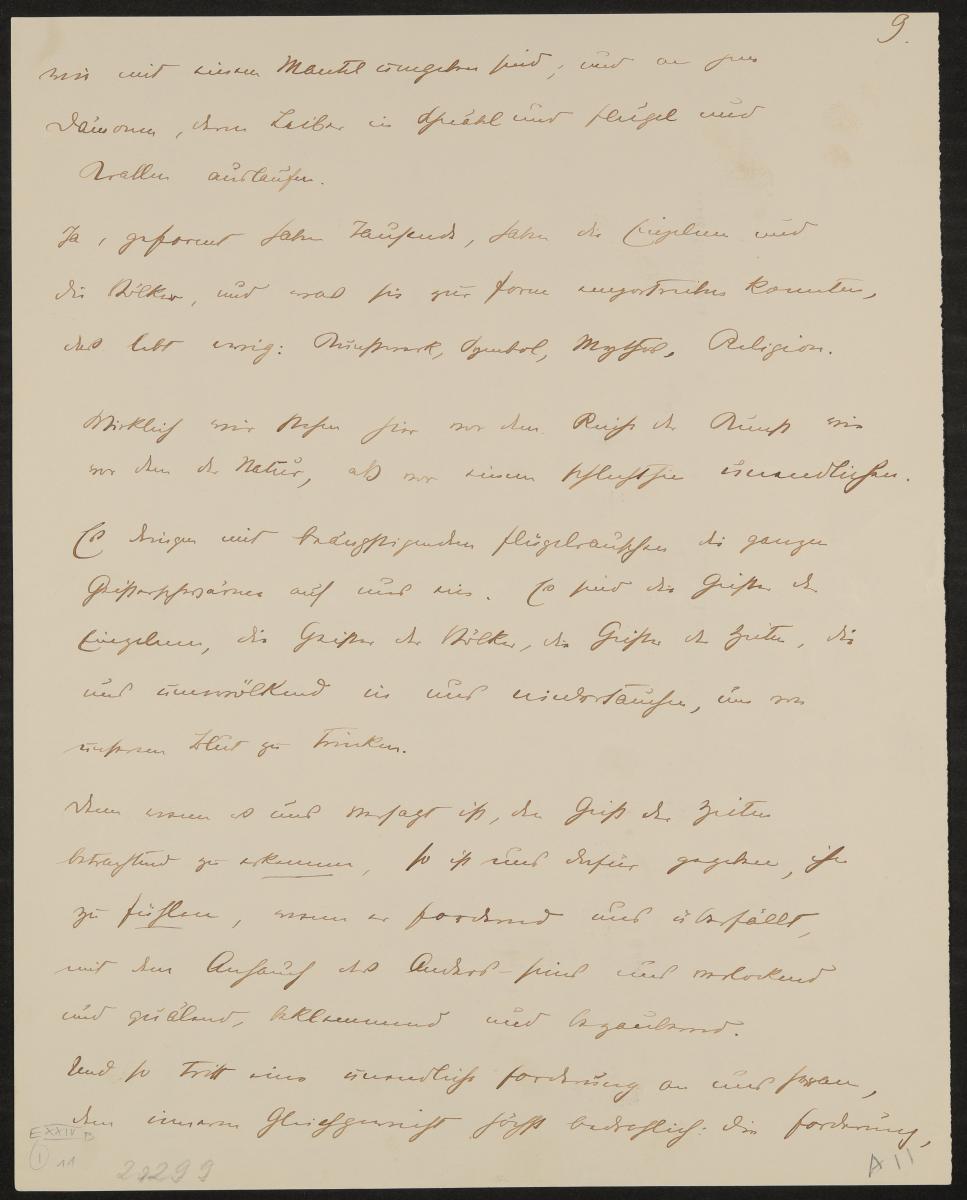 9.
wie mit einem Mantel umgeben sind, und an jene
Dämonen, deren Leiber in Schnäbel und Flügel und
Krallen auslaufen.
Ja, geformt haben Tausende, haben die Einzelnen und
die Völker, und was sie zur Form emportreiben konnten,
das lebt ewig: Kunstwerk, Symbol, Mythos, Religion.
Wirklich wir stehen hier vor dem Reich der Kunst wie
vor dem der Natur, als vor einem schlechthin unendlichen.
Es dringen mit beängstigendem Flügelrauschen die ganzen
Geisterschwärme auf uns ein. Es sind die Geister der
Einzelnen, die Geister der Völker, die Geister der Zeiten, die
uns umwölkend in uns niedertauchen, um von
unserem Blut zu trinken.
Denn wenn es uns versagt ist, den Geist der Zeiten
betrachtend zu erkennen, so ist uns dafür gegeben, ihn
zu fühlen, wenn er fordernd uns überfällt,
mit dem Anhauch des Anders-seins uns verlockend
und quälend, beklemmend und bezaubernd.
Und so tritt eine unendliche Forderung an uns heran,
dem inneren Gleichgewicht höchst bedrohlich: die Forderung,
E XXIV B
1 11
22299
A 11